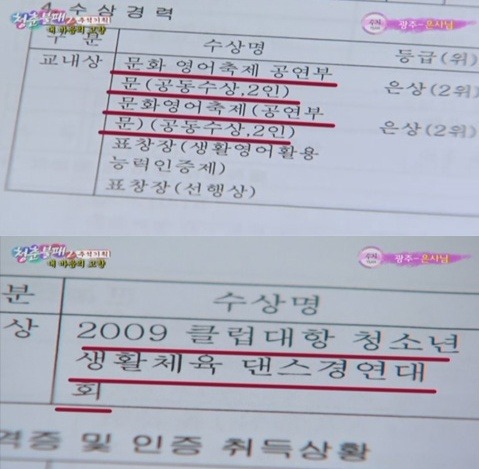 4. 수상경력
청춘불패
내 마음의 고향
광주-은사님
구 분 수상명 등급(위)
교내상 문화 영어축제 공연부
문(공동수상,2인) 은상(2위)
문화영어축제(공연부
문)(공동수상,2인) 은상(2위)
표창장(생활영어활용
능력인증제)
표창장(선행상)
청춘불패
내 마음의 고향
광주-은사님
분 수상명
상 2009 클럽대항 청소년
생활체육 댄스경연대
회
격증 및 인증 취득상황